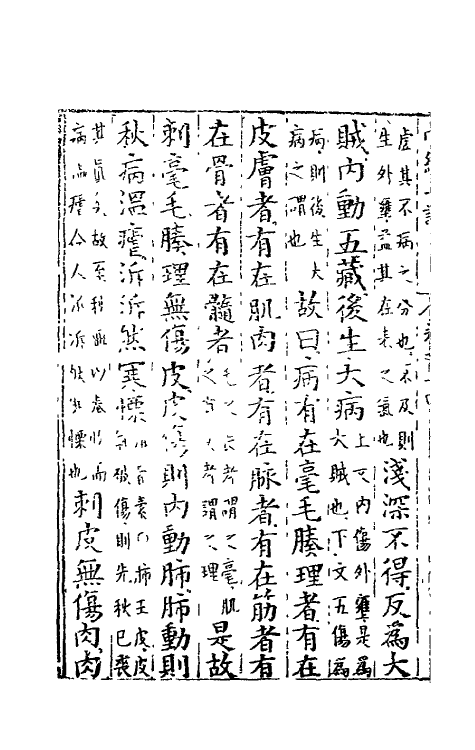 虛其不病之分也不及則
生外壅益其在表之氣也
淺深不得反爲大
賊內動五藏後生大病
上文內傷外壅是爲
大賊也下文五傷爲
病則後生大
病之謂也
故曰病有在毫毛腠理者有在
皮膚者有在肌肉者有在脉者有在筋者有
在骨者有在髓者
是故
刺毫毛腠理無傷皮皮傷則內動肺肺動則
秋病溫瘧泝泝然寒慄
肺王
皮皮
破傷則先秋已喪
其眞矣故至秋
病溫瘧令人泝泝然寒慄也
刺皮無傷肉肉